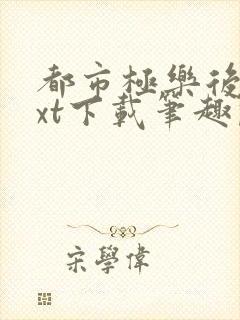 都市極樂後
xt下載筆趣
宋學偉